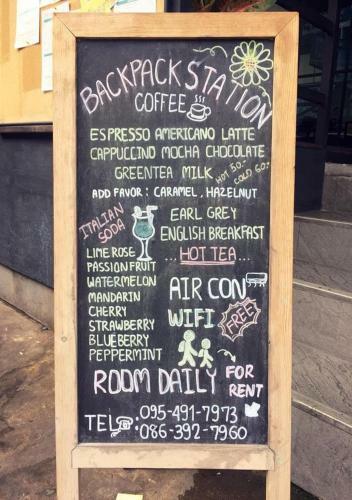 BACKPACK STATION
COFFEE
ESPRESSO AMERICANO LATTE
CAPPUCCINO MOCHA CHOCOLATE
GREENTEA MILK HOT 50.-
COLD 60.-
ADD FAVOR : CARAMEL, HAZELNUT
ITALIAN
SODA
LIME ROSE
PASSIONFRUIT
WATERMELON
MANDARIN
CHERRY
STRAWBERRY
BLUEBERRY
PEPPERMINT
EARL GREY
ENGLISH BREAKFAST
...HOT TEA...
AIR CON
WIFI FREE
ROOM DAILY FOR
RENT
TEL : 095-491-7973
086-392-7960